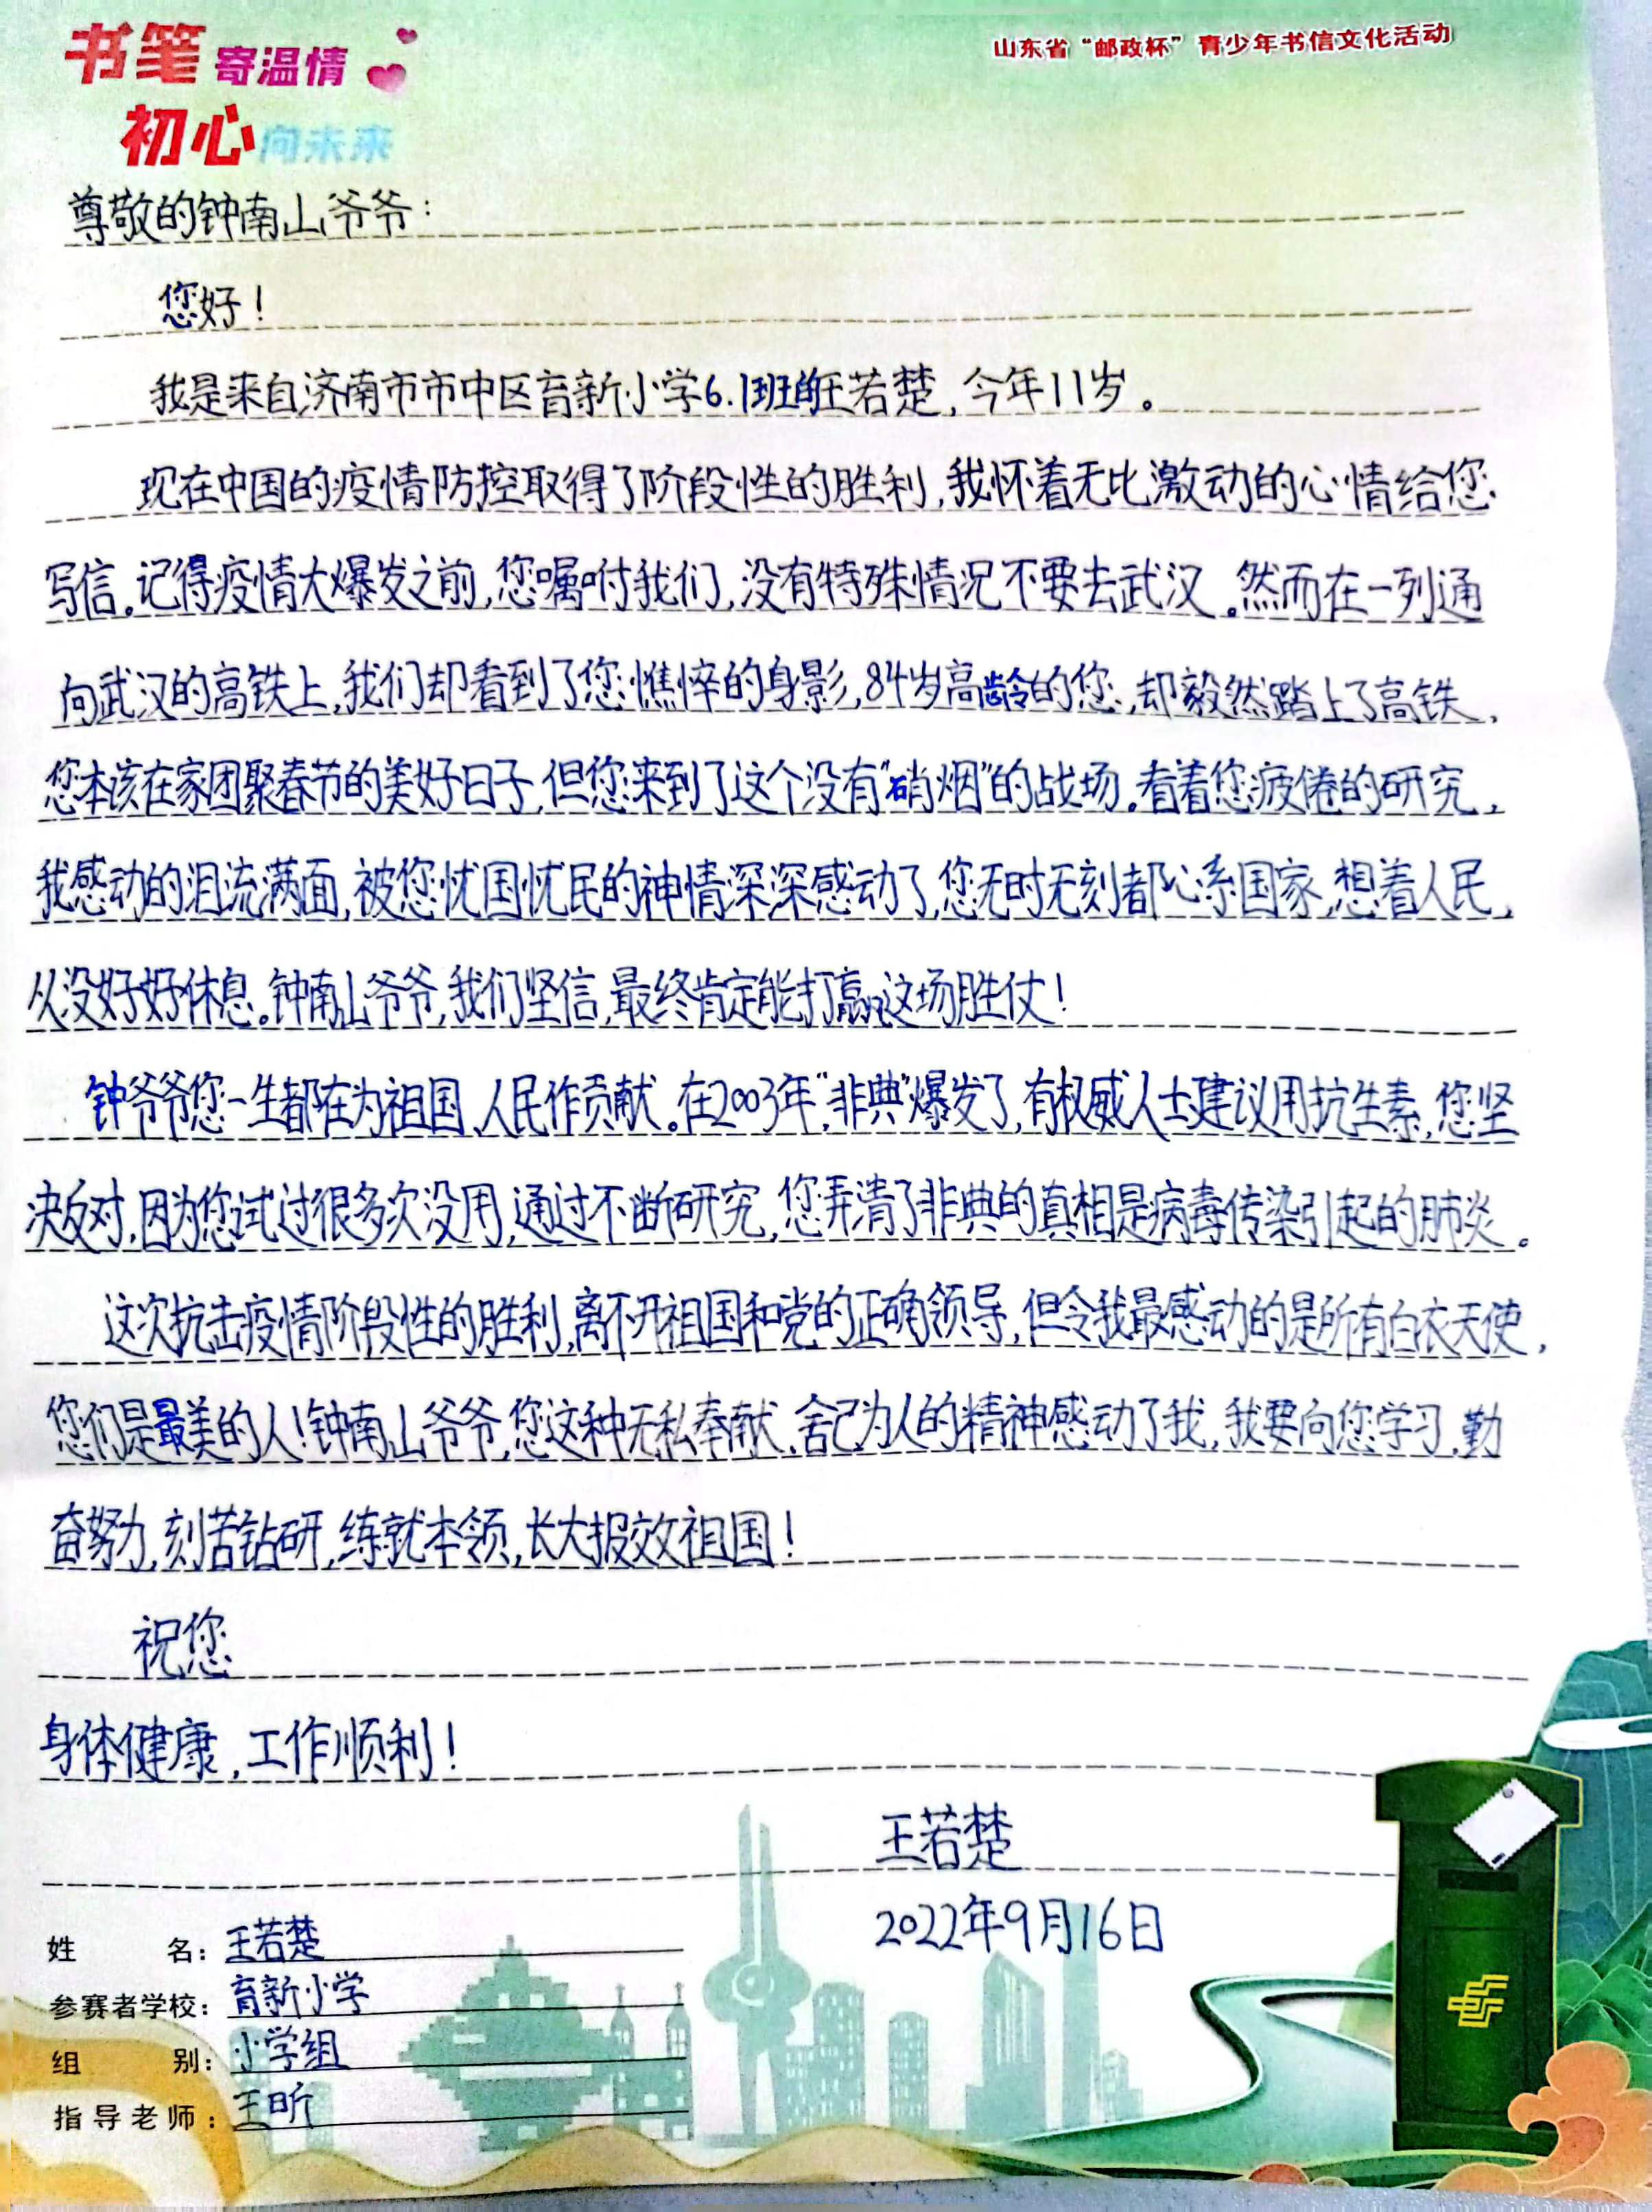 书笔寄温情
初心向未来
山东省“邮政杯”青少年书信文化活动
尊敬的钟南山爷爷：
您好！
我是来自济南市市中区育新小学6.1班的王若楚,今年11岁。
现在中国的疫情防控取得了阶段性的胜利,我怀着无比激动的心情给您
写信。记得疫情大爆发之前,您嘱咐我们,没有特殊情况不要去武汉。然而在一列通
向武汉的高铁上,我们却看到了您憔悴的身影,84岁高龄的您,却毅然踏上了高铁,
您本该在家团聚春节的美好日子,但您来到了这个没有“硝烟”的战场。看着您疲倦的研究,
我感动的泪流满面,被您忧国忧民的神情深深感动了,您无时无刻都心系国家,想着人民,
从没好好休息。钟南山爷爷,我们坚信,最终肯定能打赢这场胜仗！
钟爷爷您一生都在为祖国、人民作贡献。在2003年,“非典”爆发了,有权威人士建议用抗生素,您坚
决反对,因为您试过很多次没用,通过不断研究,您弄清了非典的真相是病毒传染引起的肺炎。
这次抗击疫情阶段性的胜利,离不开祖国和党的正确领导,但令我最感动的是所有白衣天使,
您们是最美的人！钟南山爷爷,您这种无私奉献、舍己为人的精神感动了我,我要向您学习,勤
奋努力,刻苦钻研,练就本领,长大报效祖国！
祝您
身体健康,工作顺利！
王若楚
2022年9月16日
姓名：王若楚
参赛者学校：育新小学
组别：小学组
指导老师：王昕